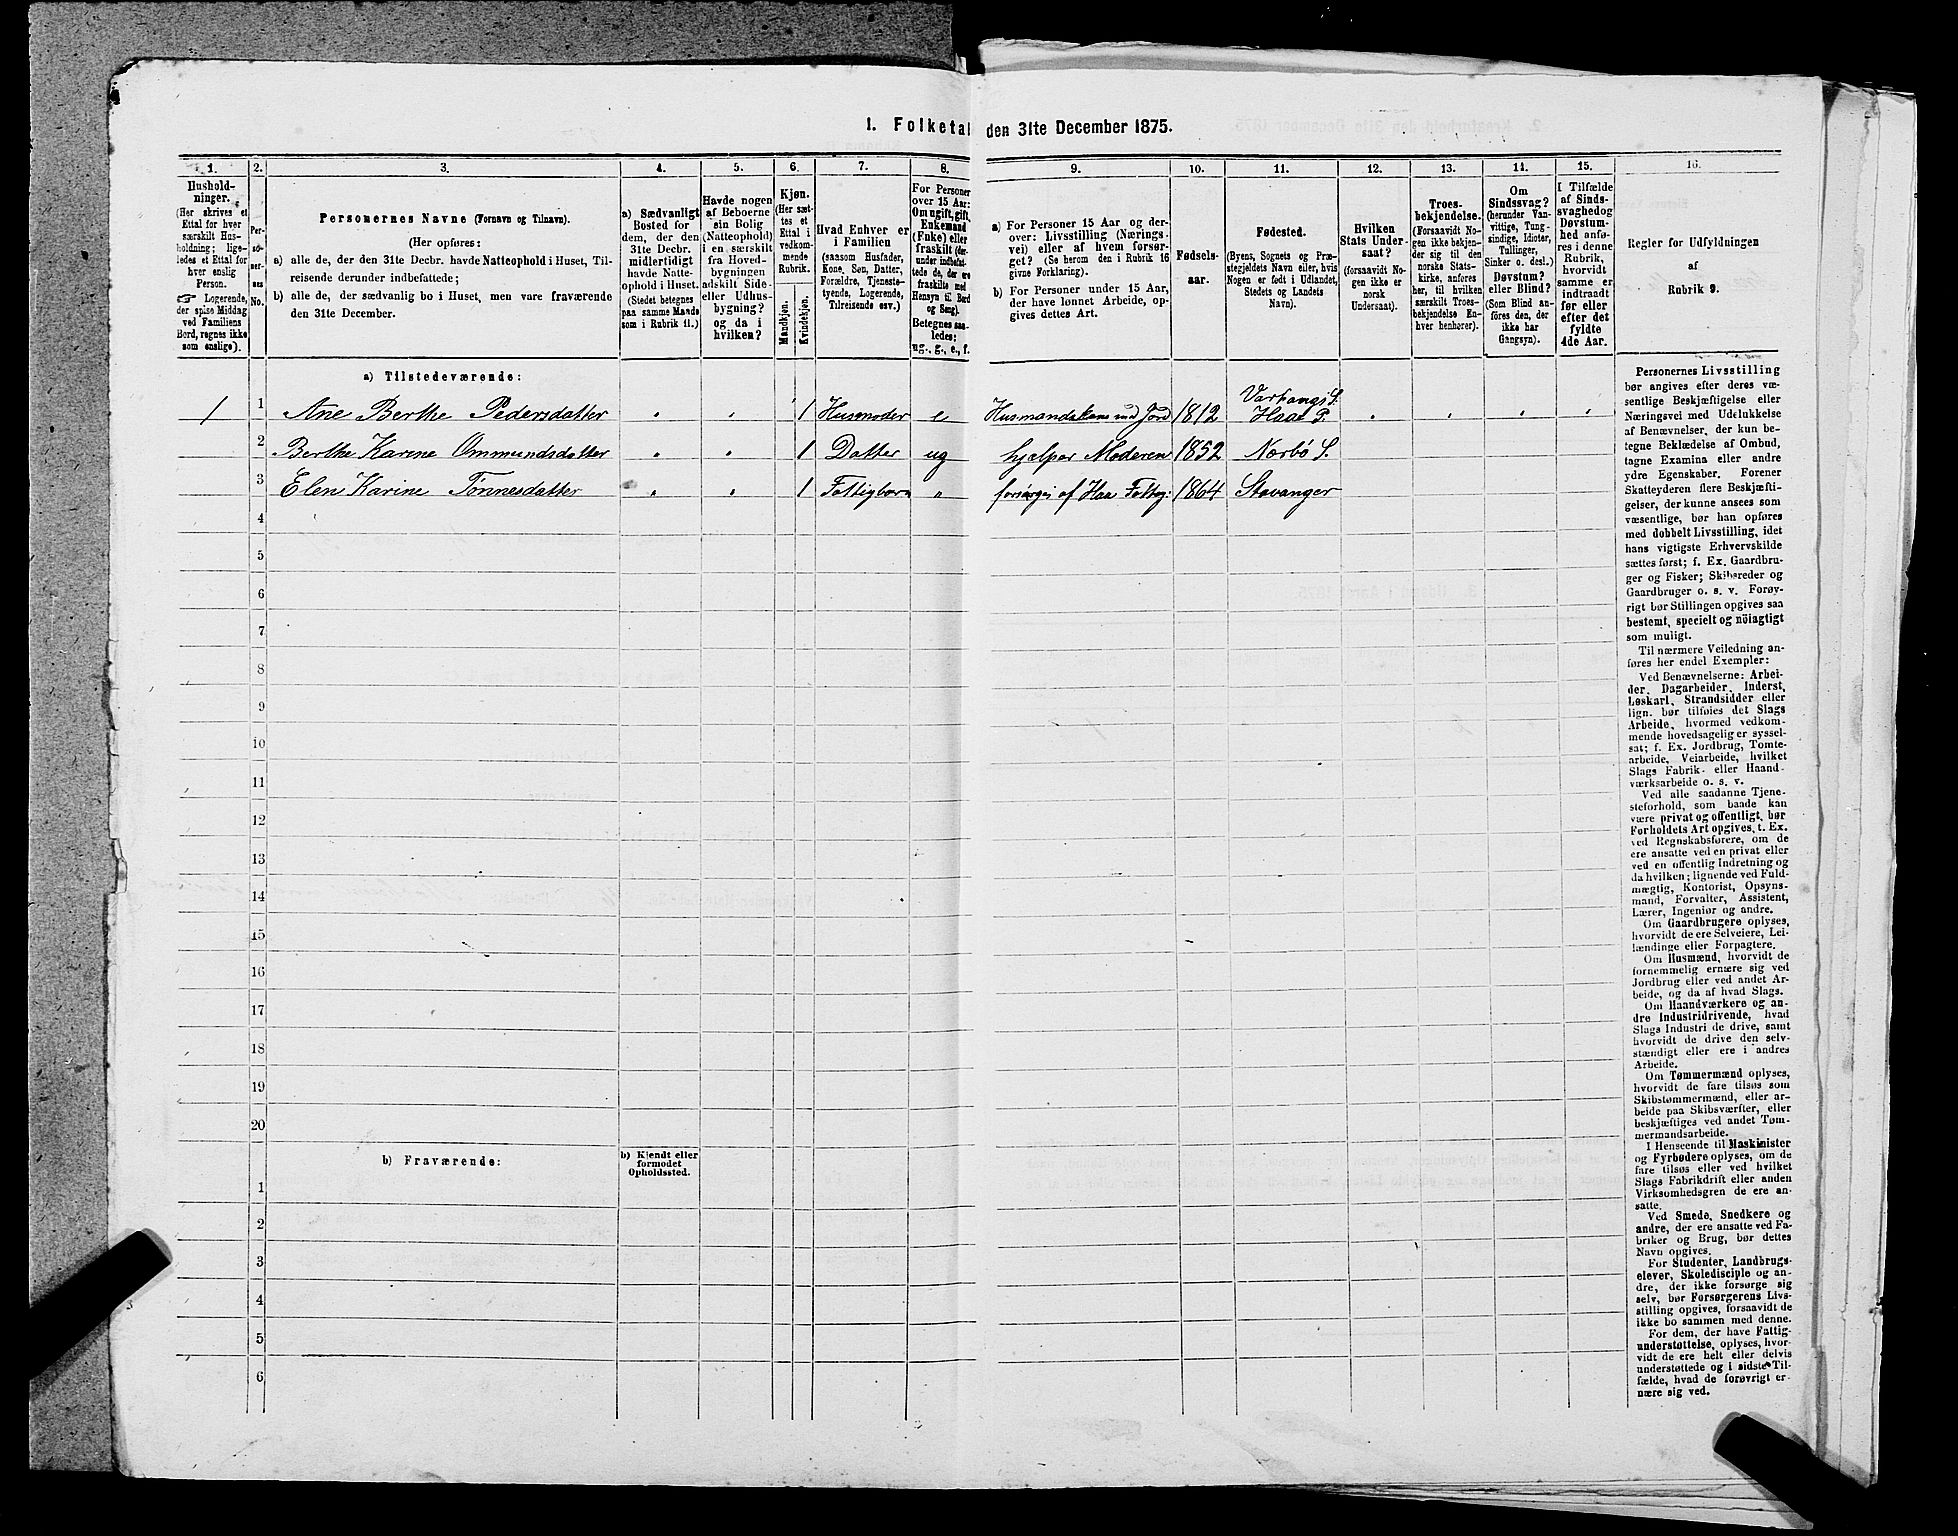 1. Folketal den 31te December 1875.
1.
Hushold-
ninger.
(Her skrives et
Ettal for hver
særskilt Hus-
holdning; lige-
ledes et Ettal for
hver enslig
Person.
☞ Logerende,
der spise Middag
ved Familiens
Bord, regnes ikke
som enslige).
2.
Per-
so-
ner-
nes
No.
3.
Personernes Navne (Fornavn og Tilnavn).
(Her opføres:
a) alle de, der den 31te Decbr. havde Natteophold i Huset, Til-
reisende derunder indbefattede;
b) alle de, der sædvanlig bo i Huset, men vare fraværende
den 31te December.
4.
a) Sædvanligt
Bosted for
dem, der den
31te Decbr.
midlertidigt
havde Natte-
ophold i Huset.
(Stedet betegnes
paa samme Maade
som i Rubrik 11.)
5.
Havde nogen
af Beboerne
sin Bolig
(Natteophold)
i en særskilt
fra Hoved-
bygningen
adskilt Side-
eller Udhus-
bygning?
og da i
hvilken?
6.
Kjøn.
(Her sæt-
tes et
Ettal i
vedkom-
mende
Rubrik.
Mandkjøn.
Kvindekjøn.
7.
Hvad Enhver er
i Familien
(saasom Husfader,
Kone, Søn, Datter,
Forældre, Tjeneste-
tyende, Logerende,
Tilreisende osv.)
8.
For Personer
over 15 Aar:
Om ugift, gift,
Enkemand
(Enke) eller
fraskilt (der-
under indbefat-
tede de, der ere
fraskilte med
Hensyn til Bord
og Seng).
Betegnes saa-
ledes:
ug., g., e., f.
9.
a) For Personer 15 Aar og der-
over: Livsstilling (Nærings-
vei) eller af hvem forsør-
get? (Se herom den i Rubrik 16
givne Forklaring).
b) For Personer under 15 Aar,
der have lønnet Arbeide, op-
gives dettes Art.
10.
Fødsels-
aar.
11.
Fødested.
(Byens, Sognets og Præ-
stegjeldets Navn eller, hvis
Nogen er født i Udlandet,
Stedets og Landets
Navn).
12.
Hvilken
Stats Under-
saat?
(forsaavidt No-
gen ikke er
norsk
Undersaat).
13.
Troes-
bekjendelse.
(Forsaavidt No-
gen ikke bekjen-
der sig til den
norske Stats-
kirke, anføres
her, til hvilken
særskilt Troes-
bekjendelse En-
hver henhører).
14.
Om
Sindssvag?
(herunder Van-
vittige, Tung-
sindige, Idioter,
Tullinger,
Sinker o. desl.).
Døvstum?
eller Blind?
(Som Blind an-
føres den, der
ikke har
Gangsyn).
15.
I Tilfælde
af Sinds-
svaghed og
Døvstum-
hed anfø-
res i denne
Rubrik,
hvorvidt
samme er
indtraadt
før eller
efter det
fyldte
4de Aar.
16.
Regler for Udfyldningen
af
Rubrik 9.
a) Tilstedeværende:
1 1 Ane Berthe Pedersdatter " " 1 Husmoder e Husmandskone med Jord 1812 Varhougs S. Haae P. " " " "
2 Berthe Karine Ommundsdatter " " 1 Datter ug hjælper Moderen 1852 Nærbø S.
3 Elen Karine Tønnesdatter " " 1 Fattigbarn " forsørges af Haa Fattig: 1864 Stavanger
4
5
6
7
8
9
10
11
12
13
14
15
16
17
18
19
20
b) Fraværende:
b) Kjendt eller
formodet
Opholdssted.
1
2
3
4
5
6
Personernes Livsstilling
bør angives efter deres væ-
sentlige Beskjæftigelse eller
Næringsvei med Udelukkelse
af Benævnelser, der kun be-
tegne Beklædelse af Ombud,
tagne Examina eller andre
ydre Egenskaber. Forener
Skatteyderen flere Beskjæfti-
gelser, der kunne ansees som
væsentlige, bør han opføres
med dobbelt Livsstilling, idet
hans vigtigste Erhvervskilde
sættes først; f. Ex. Gaardbru-
ger og Fisker; Skibsreder og
Gaardbruger o. s. v. Forøv-
rigt bør Stillingen opgives saa
bestemt, specielt og nöiagtigt
som muligt.
Til nærmere Veiledning an-
føres her endel Exempler:
Ved Benævnelserne: Arbei-
der, Dagarbeider, Inderst,
Løskarl, Strandsidder eller
lign. bør tilføies det Slags
Arbeide, hvormed vedkom-
mende hovedsagelig er syssel-
sat; f. Ex. Jordbrug, Tomte-
arbeide, Veiarbeide, hvilket
Slags Fabrik- eller Haand-
værksarbeide o. s. v.
Ved alle saadanne Tjene-
steforhold, som baade kan
være privat og offentligt, bør
Forholdets Art opgives, t. Ex.
ved Regnskabsførere, om de
ere ansatte ved en privat eller
ved en offentlig Indretning og
da hvilken; lignende ved Fuld-
mægtig, Kontorist, Opsyns-
mand, Forvalter, Assistent,
Lærer, Ingeniør og andre.
Om Gaardbrugere oplyses,
hvorvidt de ere Selveiere, Lei-
lændinge eller Forpagtere.
Om Husmænd, hvorvidt de
fornemmelig ernære sig ved
Jordbrug eller ved andet Ar-
beide, og da af hvad Slags.
Om Haandværkere og an-
dre Industridrivende, hvad
Slags Industri de drive, samt
hvorvidt de drive den selv-
stændigt eller ere i andres
Arbeide.
Om Tømmermænd oplyses,
hvorvidt de fare tilsøs som
Skibstømmermænd, eller ar-
beide paa Skibsværfter, eller
beskjæftiges ved andet Tøm-
mermandsarbeide.
I Henseende til Maskinister
og Fyrbødere oplyses, om de
fare tilsøs eller ved hvilket
Slags Fabrikdrift eller anden
Virksomhedsgren de ere an-
satte.
Ved Smede, Snedkere og
andre, der ere ansatte ved Fa-
briker og Brug, bør dettes
Navn opgives.
For Studenter, Landbrugs-
elever, Skoledisciple og an-
dre, der ikke forsørge sig
selv, bør Forsørgerens Livs-
stilling opgives, forsaavidt de
ikke bo sammen med denne.
For dem, der have Fattig-
understøttelse, oplyses, hvor-
vidt de ere helt eller delvis
understøttede og i sidste Til-
fælde, hvad de forøvrigt er-
nære sig ved.